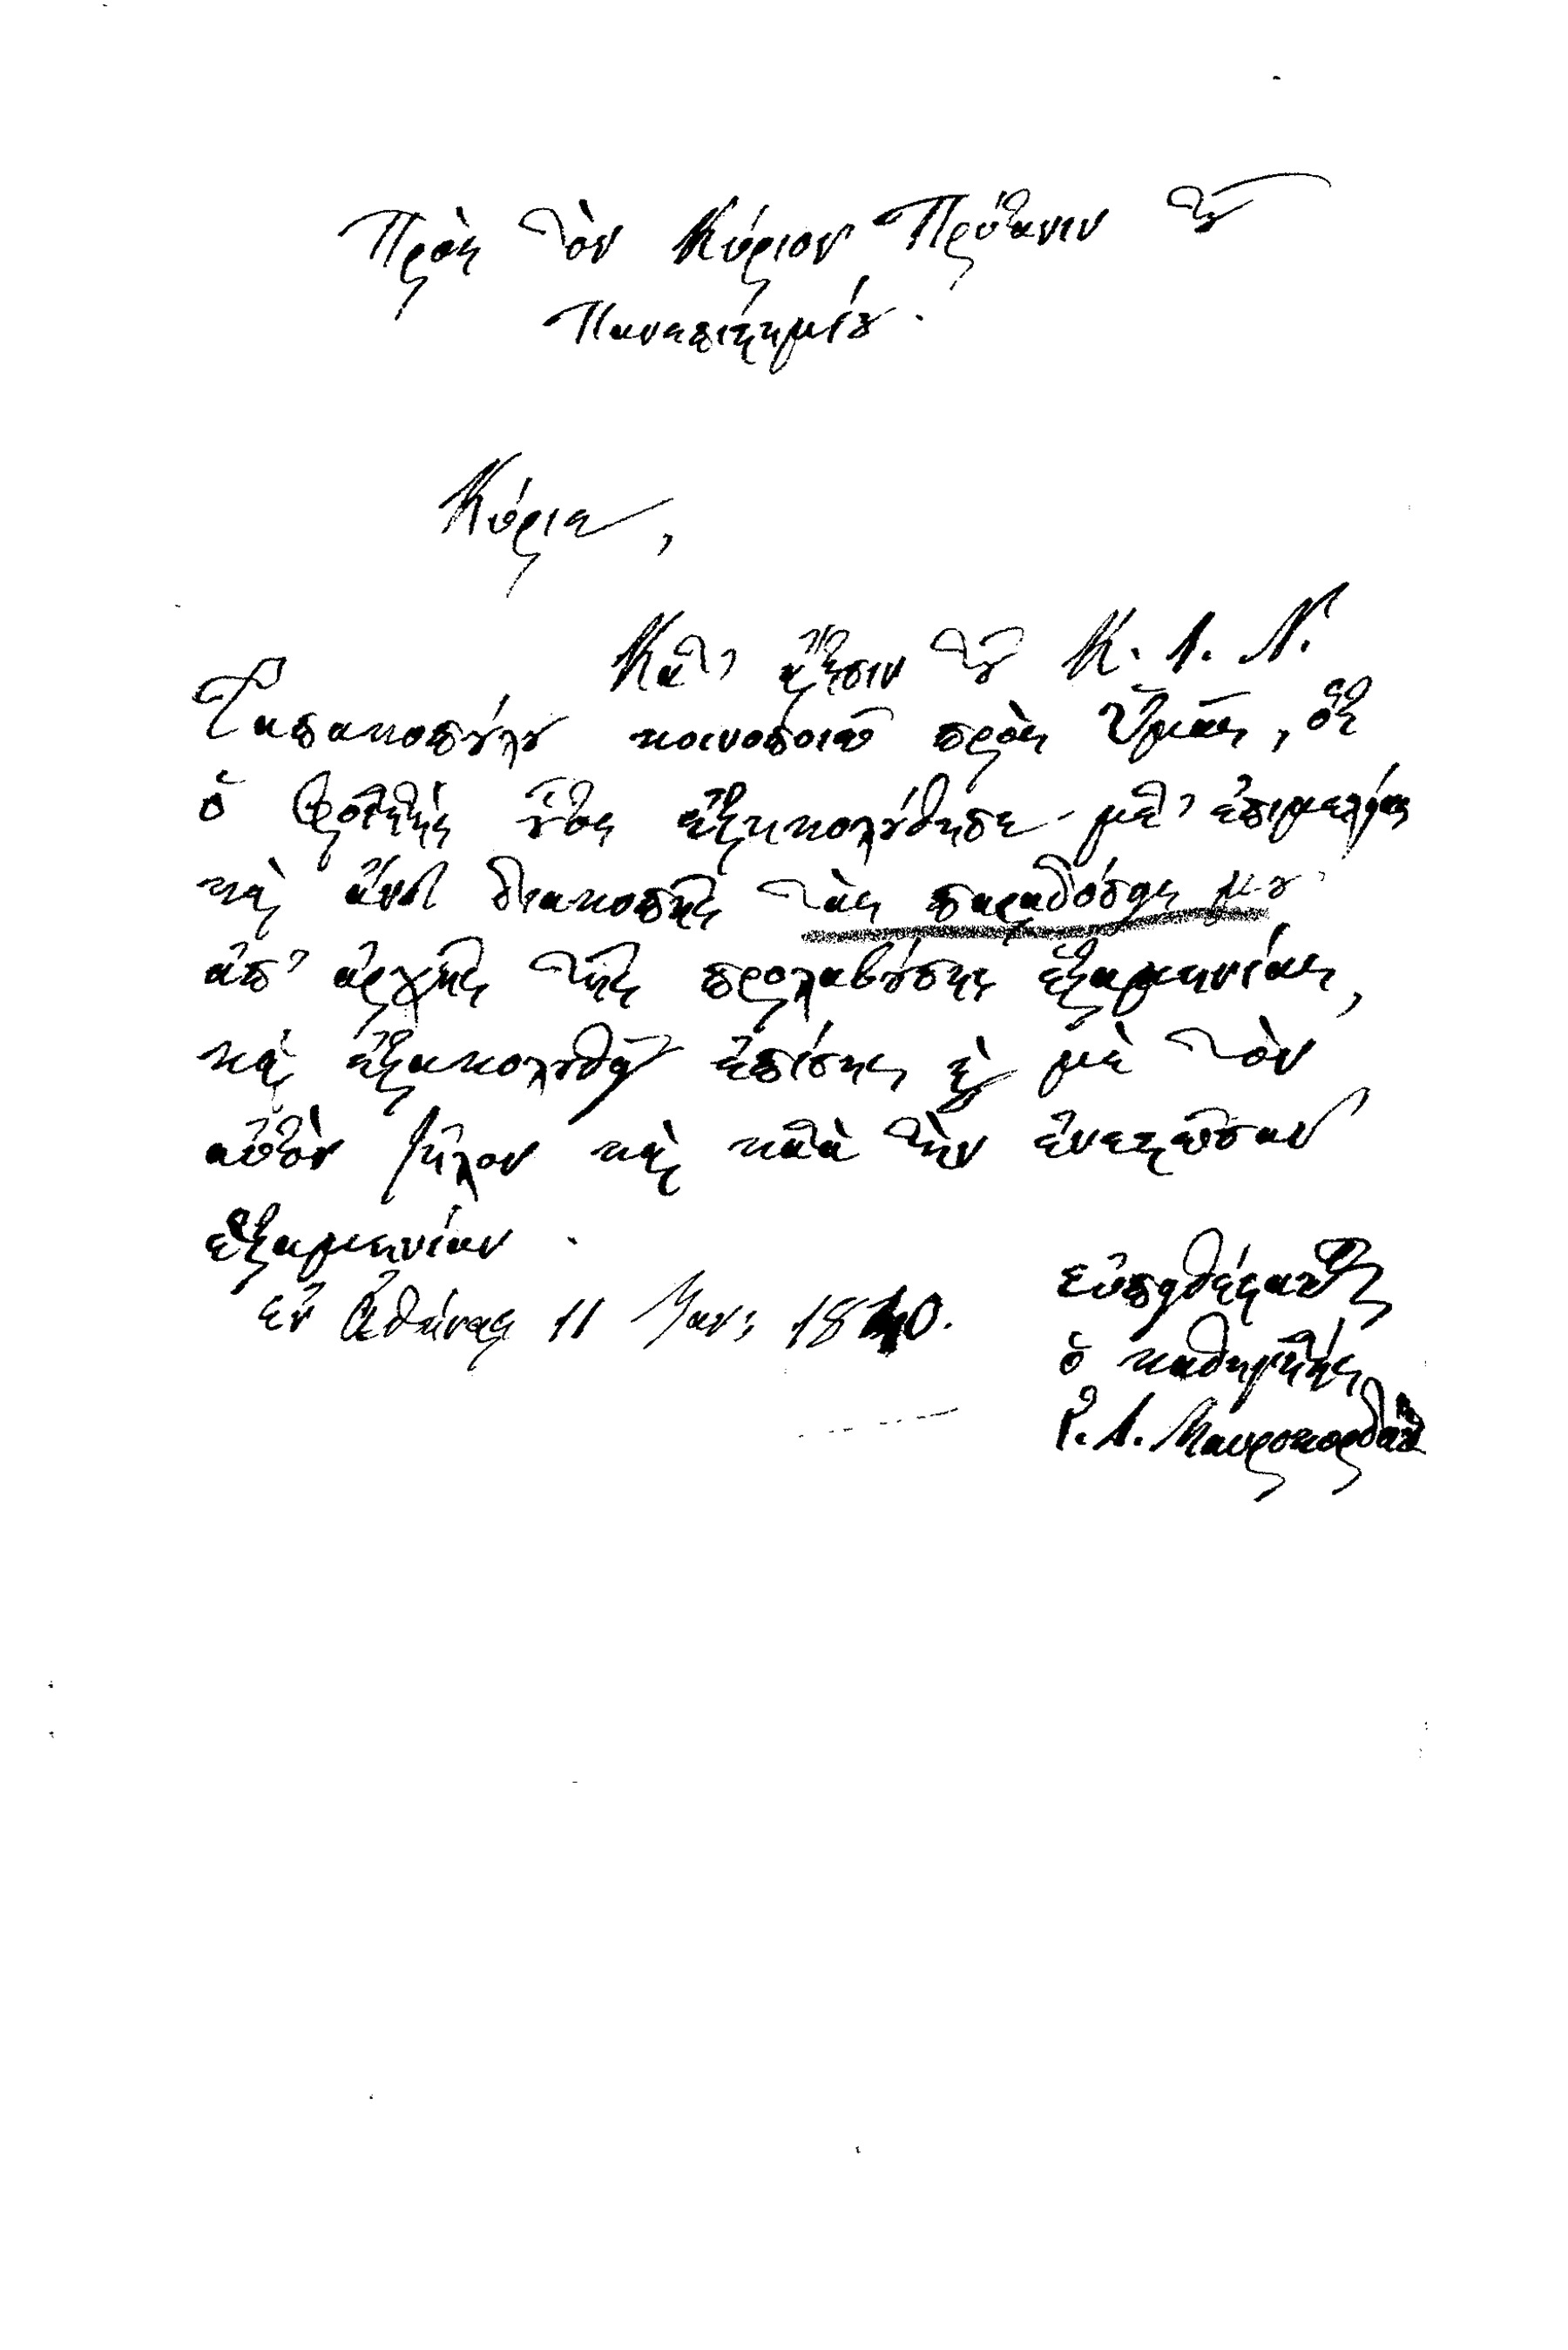 Πρὸς τὸν Κύριον Πρύτανιν τȣ͂
Πανεπιϛημίȣ.
Κύριε,
Κατ' αἴτησιν τȣ͂ Κ. Λ. Ν.
Παπακοπȣ́λȣ κοινοποιῶ πρὸς Ὑμᾶς, ὅτι
ὁ φοιτητὴς ȣ̓͂τος ἐξηκολȣ́θησε μετ' ἐπιμελείας
καὶ ἄνευ διακοπῆς τὰς παραδόσεις μȣ
ἀπ' ἀρχῆς τῆς προλαβȣ́σης ἑξαμηνίας,
καὶ ἐξακολȣθεῖ ἐπίσης μὲ τὸν
αὐτὸν ζῆλον καὶ κατὰ τὴν ἐνεϛῶσαν
ἑξαμηνίαν.
ἐν Ἀθήναις 11 Ἰαν: 1840.
εὐπειθέϛατος
ὁ καθηγητής
Γ. Α. Μαυροκορδάτος